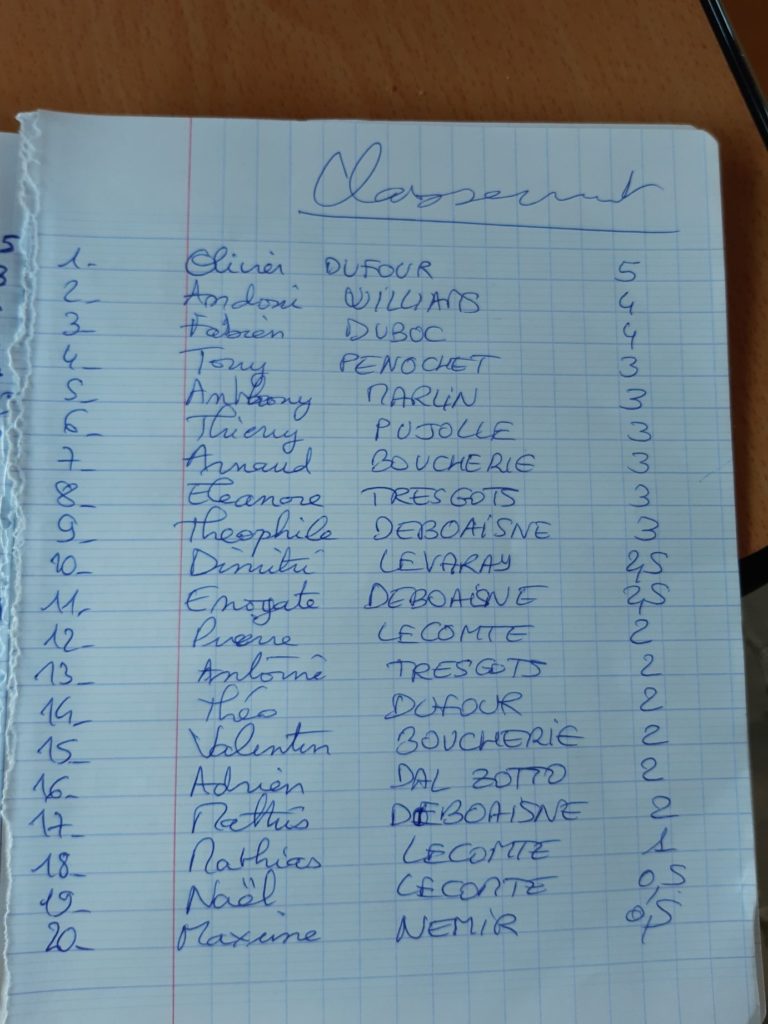 Classement
1- Olivier DUFOUR 5
2- Andoni WILLIAMS 4
3- Fabien DUBOC 4
4- Tony PENOCHET 3
5- Anthony MARLIN 3
6- Thierry PUJOLLE 3
7- Arnaud BOUCHERIE 3
8- Eleanore TRESGOTS 3
9- Théophile DEBOAISNE 3
10- Dimitri LEVARAY 2,5
11- Enogate DEBOAISNE 2,5
12- Pierre LECOMTE 2
13- Antoine TRESGOTS 2
14- Théo DUFOUR 2
15- Valentin BOUCHERIE 2
16- Adrien DAL ZOTTO 2
17- Mathis DEBOAISNE 2
18- Mathias LECOMTE 1
19- Naël LECOMTE 0,5
20- Maxime NEMIR 0,5